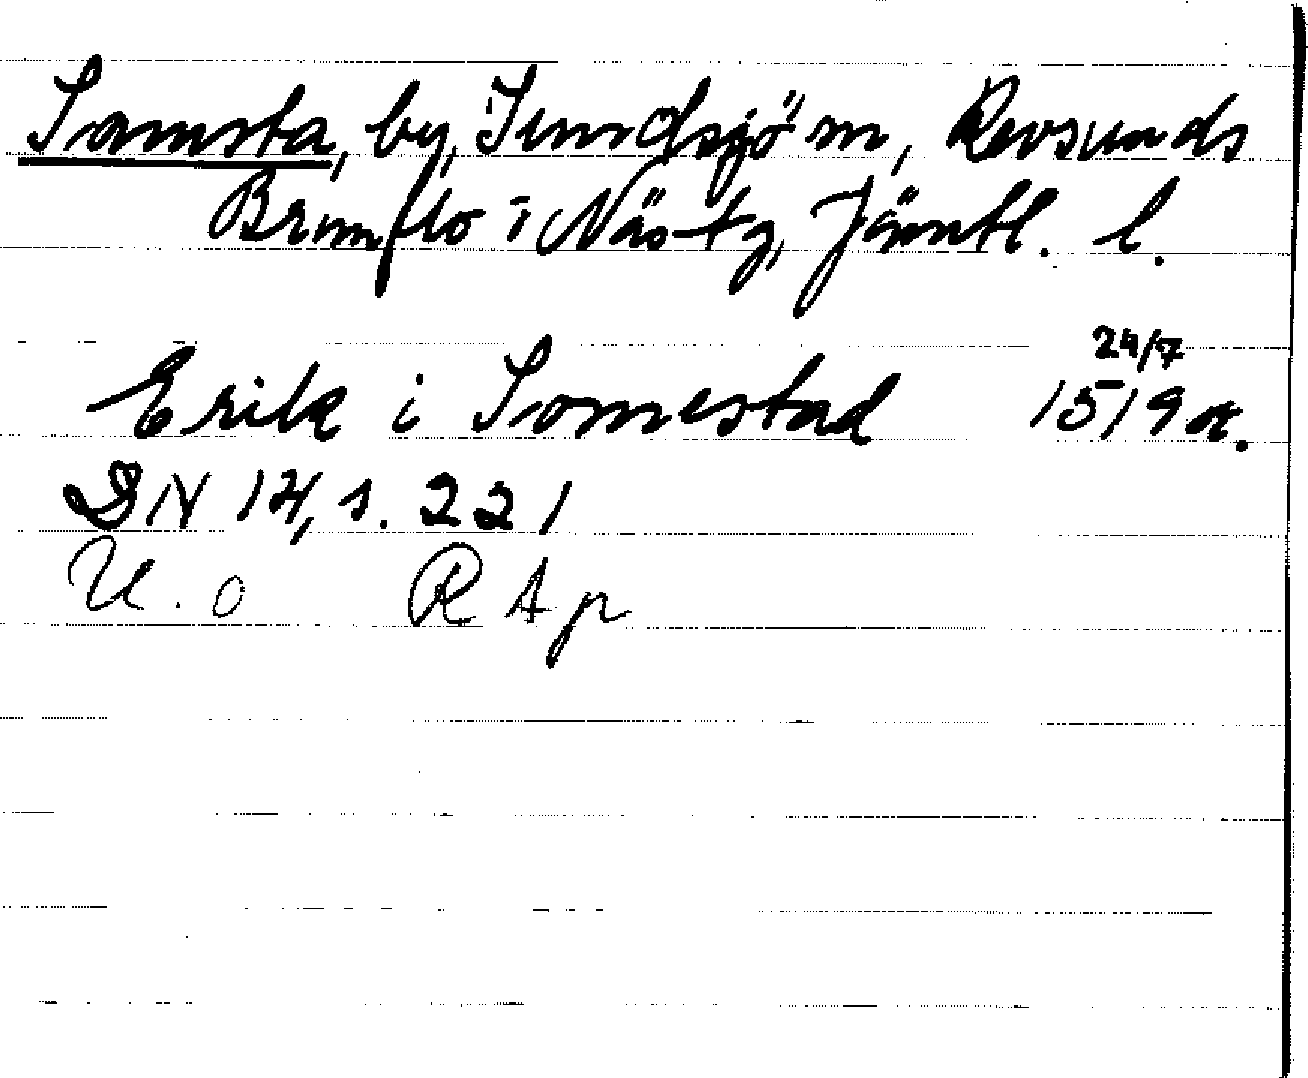 Samsta, by, Sundsjö sn, Revsunds
Brunflo i Näs tg, Jämtl. l.
Erik i Somestad 24/7 1519 or.
DN 14, s. 221
U. o RAp